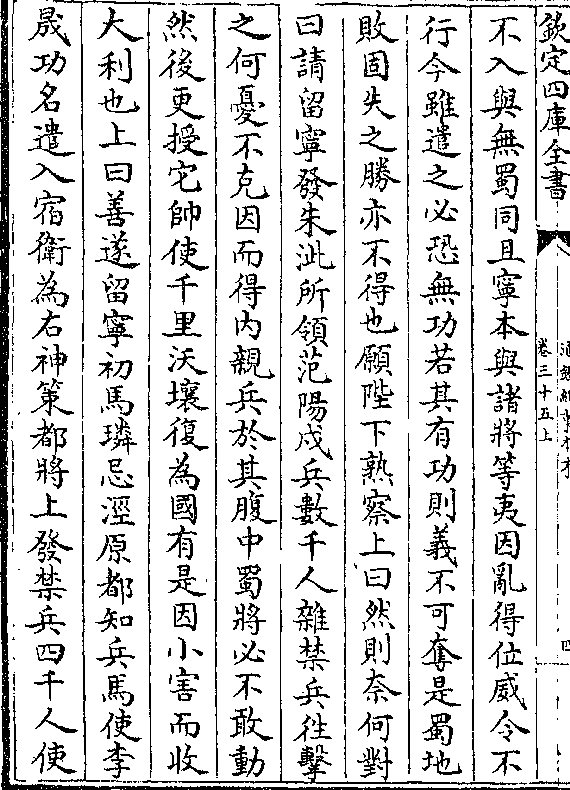 欽定四庫全書
卷三十五上
四
不入與無蜀同且寧本與諸將等夷因亂得位威令不
行今雖遣之必恐無功若其有功則義不可奪是蜀地
敗固失之勝亦不得也願陛下熟察上曰然則奈何對
曰請留寧發朱泚所領范陽戍兵數千人雜禁兵往擊
之何憂不克因而得内親兵於其腹中蜀將必不敢動
然後更授它帥使千里沃壤復為國有是因小害而收
大利也上曰善遂留寧初馬璘忌涇原都知兵馬使李
晟功名遣入宿衛為右神策都將上發禁兵四千人使